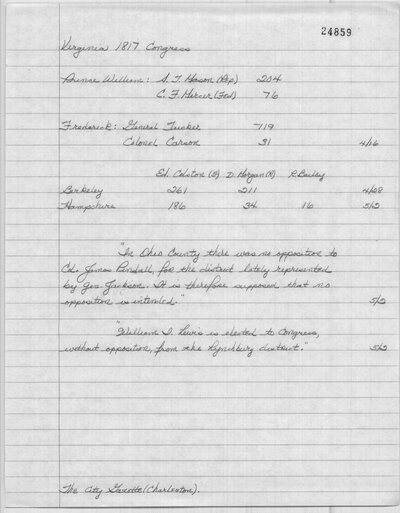 24859
Virginia 1817 Congress
Prince William: S. T. Mason (Rep) 204
C. F. Mercer (Fed) 76
Frederick: General Tucker 719
Colonel Carson 31 4/16
Ed. Colston (F) D. Morgan (R) R. Bailey
Berkeley 261 211 4/28
Hampshire 186 34 16 5/2
"In Ohio County there was no opposition to
Col. James Pindall, for the district lately represented
by Geo Jackson. It is therefore supposed that no
opposition is intended." 5/2
"William J. Lewis is elected to Congress,
without opposition, from the Lynchburg district." 5/2
The City Gazette (Charleston).